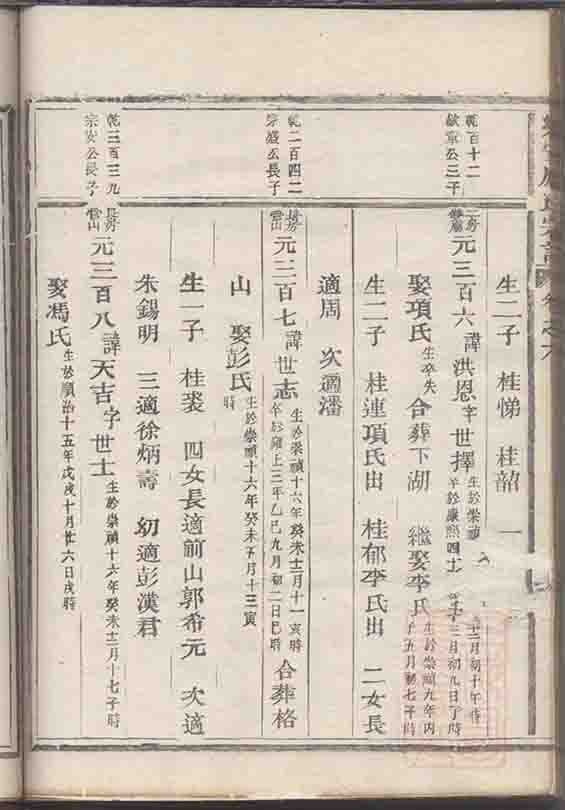 乾百十二
敏軍公三子
生二子 桂悌 桂韶 一
二房
元三百六諱洪恩字世擇 生於崇禎 十二月初十午時
卒於康熙四十 三月初九日丁時
娶項氏 生卒失 合葬下湖 繼娶李氏 生於崇禎九年丙
子五月初七子時
生二子 桂連項氏出 桂郁李氏出 二女長
適周 次適潘
乾二百四二
彥盛公長子
長房
雲山
元三百七諱世志 生於崇禎十六年癸未十二月十一寅時
卒於雍正三年乙巳九月初二日巳時
合葬格
山 娶彭氏 生於崇禎十六年癸未五月十三寅
時
生一子 桂裘 四女長適前山郭希元 次適
朱錫明 三適徐炳壽 幼適彭漢君
乾三百三九
宗安公長子
長房
雲山
元三百八諱天吉字世士 生於崇禎十六年癸未十二月十七子時
娶馮氏 生於順治十五年戊戌十月廿六日戌時